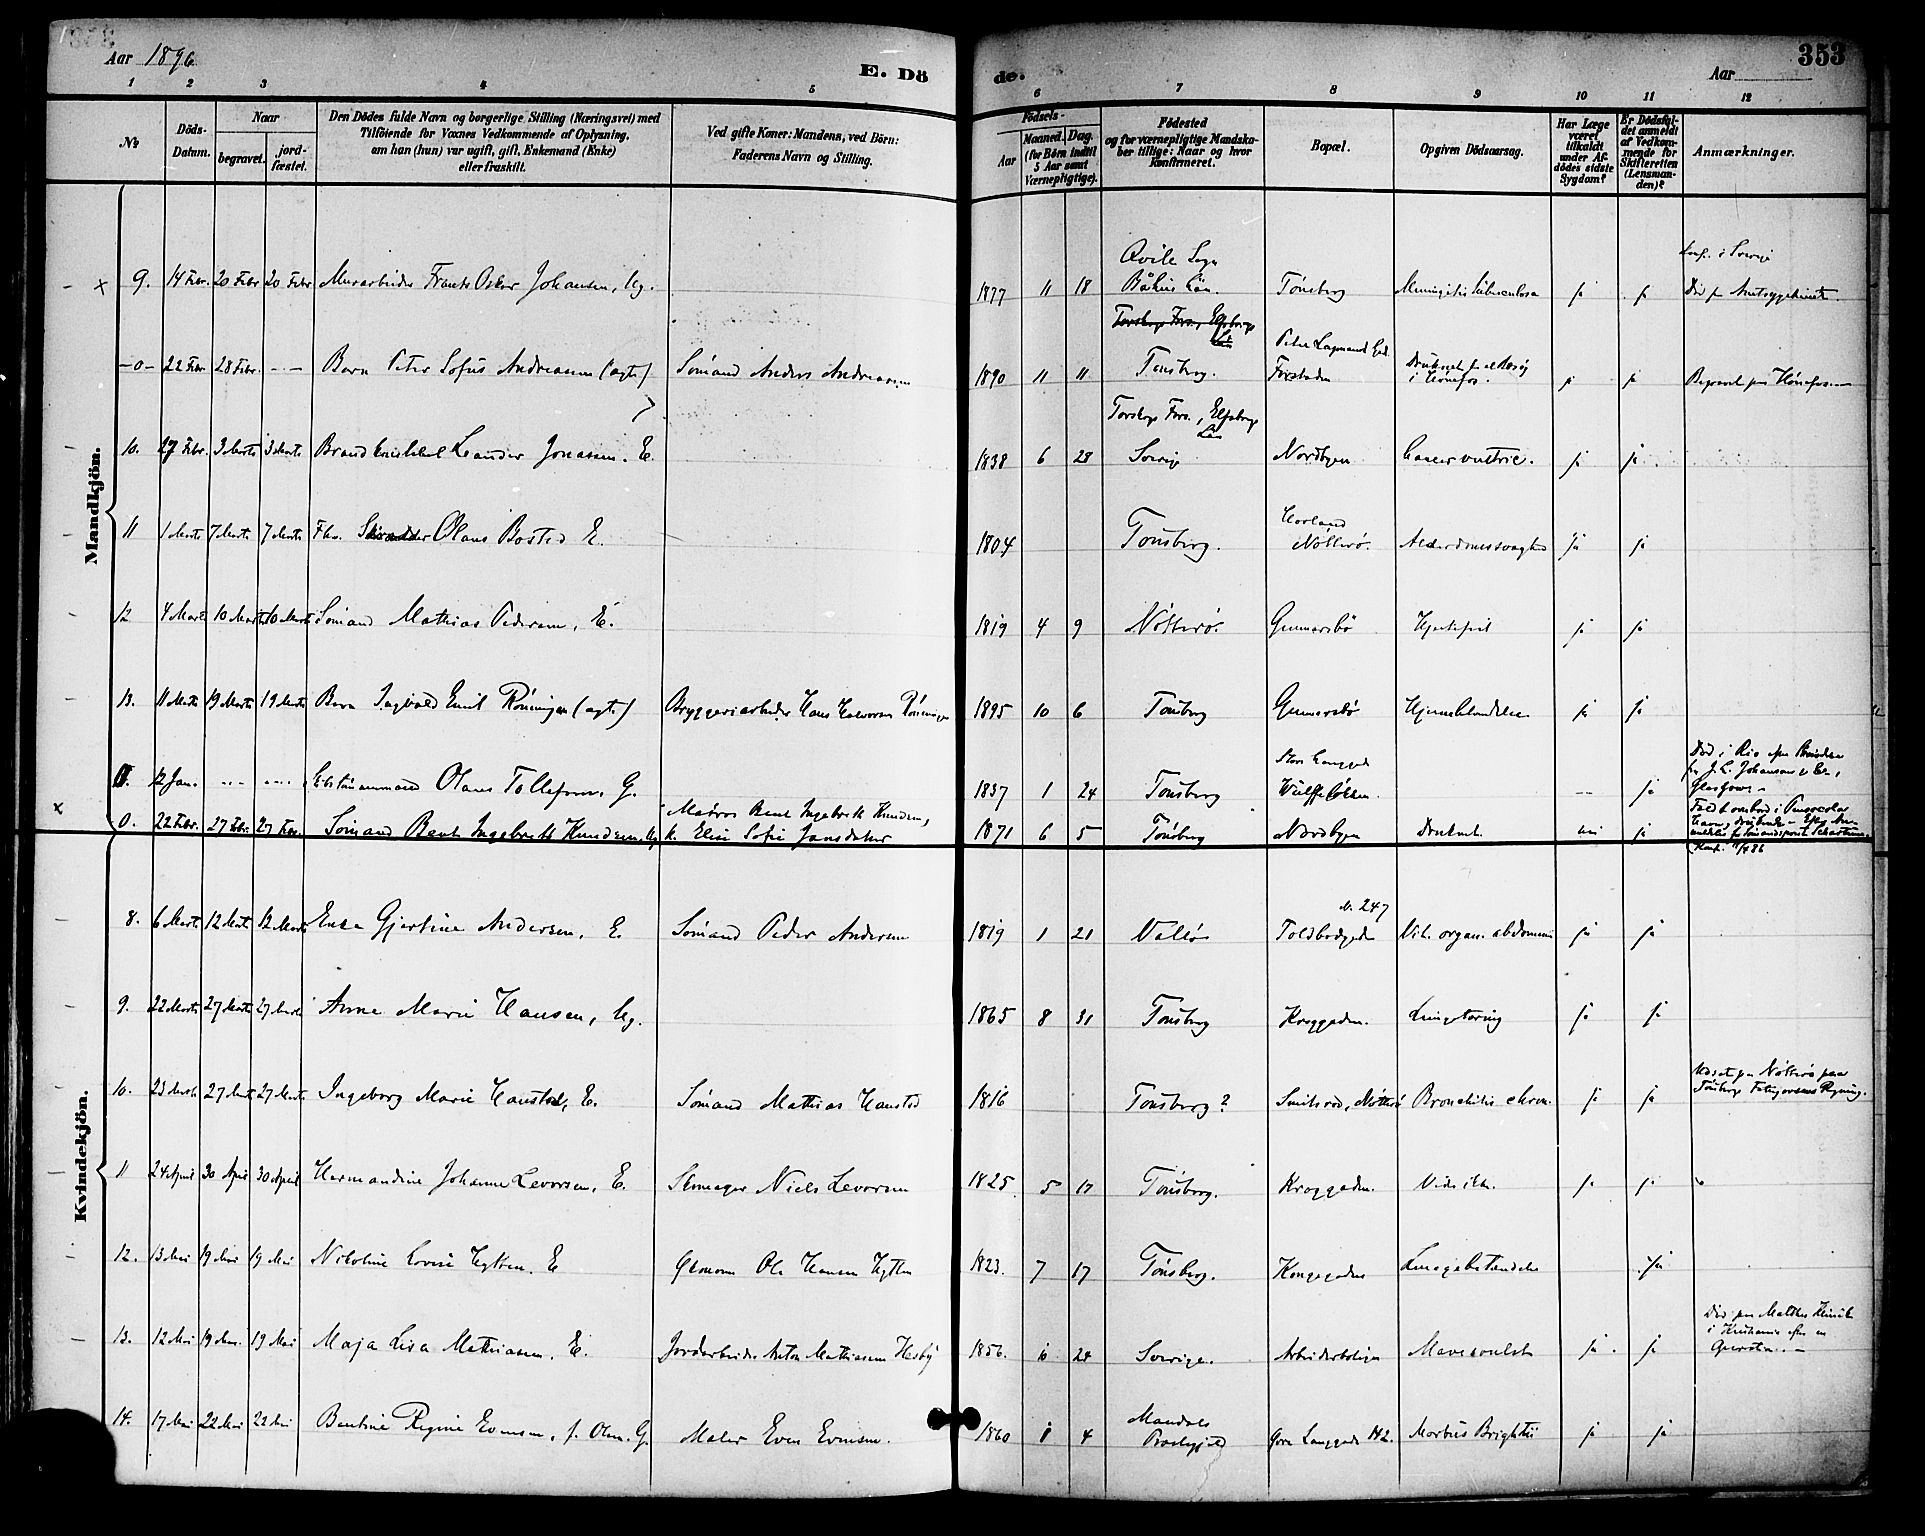 Aar 1896
E. Dö
de.
Aar
353
1 2 3 4 5 6 7 8 9 10 11 12
No
Döds-Datum.
Naar
begravet.
jord-fæstet.
Den Dödes fulde Navn og borgerlige Stilling (Næringsvei) med
Tilföiende for Voxnes Vedkommende af Oplysning,
om han (hun) var ugift, gift, Enkemand (Enke)
eller fraskilt.
Ved gifte Koner: Mandens, ved Börn:
Faderens Navn og Stilling.
Födsels-
Aar
Maaned. Dag.
(for Börn indtil
5 Aar samt
Værnepligtige).
Födested
og for værnepligtige Mandska-
ber tillige: Naar og hvor
konfirmeret.
Bopæl.
Opgiven Dödsaarsag.
Har Læge
været
tilkaldt
under Af-
dödes sidste
Sygdom?
Er Dödsfal-
det anmeldt
af Vedkom-
mende for
Skifteretten
(Lensman-
den)?
Anmærkninger.
Mandkjön.
9. 14 Febr. 20 Febr 20 Febr Murarbeider Frants Oskar Johansen, Ug. 1877 11 18 Qville Sogn Båhus Län. Tönsberg Meningitis tuberculosa ja ja
Torskogs Fors., Elfsborgs Län
-0- 22 Febr. 28 Febr. - - Barn Peter Sofus Andreasen (ægte) Sömand Anders Andreasen 1890 11 11 Tönsberg. Forstaden Druknet i Hönefos. ja ja Begravet paa Hönefos
10. 27 Febr. 3 Marts 3 Marts Leander Jonassen. E. 1838 6 28 Torskogs Fors., Elfsborgs Län Sverige Nordbyen Cancer ventric. ja ja
11 1 Marts 7 Marts 7 Marts Fhv. Skrædder Olaus Basted E. 1804 Tönsberg. Nötterö. Alderdomssvaghed ja ja
12 4 Marts 10 Marts 10 Marts Sömand Mathias Pedersen, E. 1819 4 9 Nötterö. Gunnarsbö Hjertefeil ja ja
13. 11 Marts 19 Marts 19 Marts Barn Ingvald Emil Röningen (ægte) Bryggeriarbeider Hans Halvorsen Röningen 1895 10 6 Tönsberg Gunnarsbö Hjernebetændelse ja ja
0. 12 Jan. - - - - Olaus Tollefsen, G. 1837 1 24 Tönsberg - - ja Död i Rio J. L. Johansen & Co., Glasgow
0. 22 Febr. 27 Febr. 27 Febr. Sömand Bent Ingebrett Knudsen, Ug. Matros Bent Ingebrett Knudsen, k. Elise Sofie Jansdatter 1871 6 5 Tönsberg Nordbyen Druknet nei ja Faldt ombord i Pensacolas Havn, druknede
Kvindekjön.
8. 6 Marts 12 Marts 12 Marts Enke Gjertine Andersen, E. Sömand Peder Andersen 1819 1 21 Vallö N. 247 Toldbodgaden Vit. organ. abdomin ja ja
9. 22 Marts 27 Marts 27 Marts Anne Marie Hansen, Ug. 1865 8 31 Tönsberg Kroggaden. Lungetæring ja ja
10. 23 Marts 27 Marts 27 Marts Ingeborg Marie Hansted, E. Sömand Mathias Hansted 1816 Tönsberg? Smidsröd, Nötterö Bronchitis chron. ja ja Udsat paa Nötterö paa Tönsbergs Fattigvæsens Regning.
11 24 April 30 April 30 April Hermandine Johanne Levorsen, E. Skomager Niels Levorsen 1825 5 17 Tönsberg. Kroggaden. Vides ikke. ja ja
12. 13 Mai 19 Mai 19 Mai Nikoline Lovise Hytten. E Ole Hansen Hytten 1823. 7 17 Tönsberg. Kongegaden Lungebetændelse ja
13. 12 Mai 19 Mai 19 Mai Maja Lisa Mathiasen. E. Jordarbeider Anton Mathiasen Hesby 1856. 10 24 Sverige. Arbeiderboligen Mavesvulst ja ja Död paa i Kristiania efter en Operation
14. 17 Mai 22 Mai 22 Mai Bentine Regine Evensen, f. Olsen. G. Maler Even Evensen. 1860 8 4 Mandals Præstegjeld Övre Langgade 142. Morbus Brightii ja ja